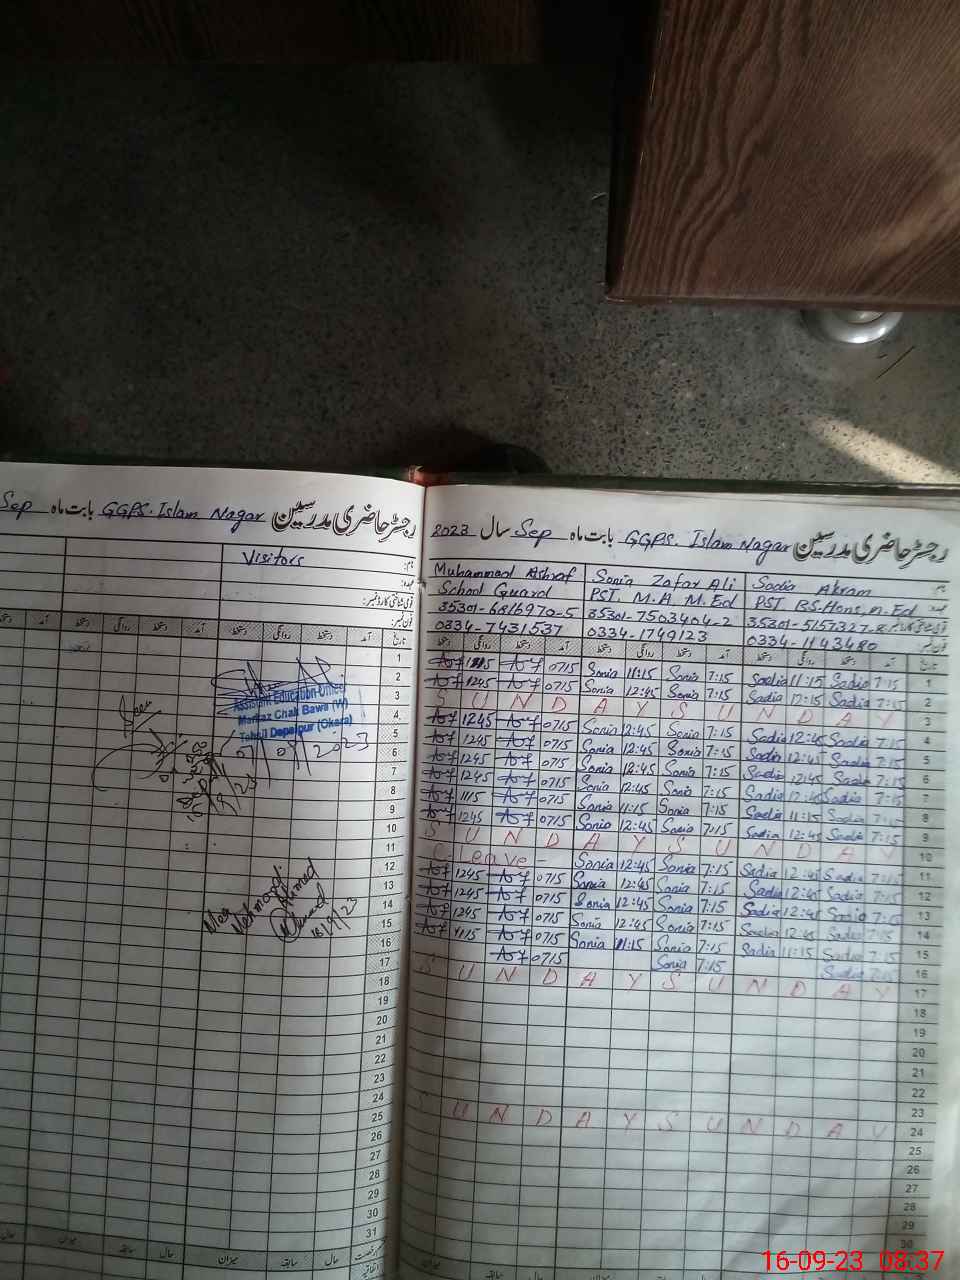 رجسٹر حاضری مدرسین GGPS. Islam Nagar بابت ماہ Sep
نام:
Visitors
عہدہ:
قومی شناختی کارڈ نمبر:
فون نمبر:
تاریخ آمد دستخط روانگی دستخط آمد دستخط روانگی دستخط
1
2
3
4
5
6
7
8
9
10
11
12
13
14
15
16
17
18
19
20
21
22
23
24
25
26
27
28
29
30
31
Assistant Education Officer
Markaz Chak Bawa (W)
Tehsil Depalpur (Okara)
Seen
Mehmood
Ahmed
میزان سابقہ حال میزان سابقہ حال
رجسٹر حاضری مدرسین GGPS. Islam Nagar بابت ماہ Sep سال 2023
Muhammad Ashraf Sonia Zafar Ali Sadia Akram
School Guard PST. M.A. M.Ed PST B.S.Hons, M.Ed
35301-6816970-5 35301-7503404-2
0334-7431537 0334-1749123 0334-1143480
دستخط روانگی دستخط آمد دستخط روانگی دستخط آمد دستخط روانگی دستخط آمد تاریخ
0715 Sonia 11:15 Sonia 7:15 Sadia 11:15 Sadia 7:15 1
1245 0715 Sonia 12:45 Sonia 7:15 Sadia 12:15 Sadia 7:15 2
S U N D A Y S U N D A Y 3
1245 0715 Sonia 12:45 Sonia 7:15 Sadia 12:45 Sadia 7:15 4
1245 0715 Sonia 12:45 Sonia 7:15 Sadia 12:45 Sadia 7:15 5
1245 0715 Sonia 12:45 Sonia 7:15 Sadia 12:45 Sadia 7:15 6
1245 0715 Sonia 12:45 Sonia 7:15 Sadia 12:45 Sadia 7:15 7
1115 0715 Sonia 11:15 Sonia 7:15 Sadia 11:15 Sadia 7:15 8
1245 0715 Sonia 12:45 Sonia 7:15 Sadia 12:45 Sadia 7:15 9
S U N D A Y S U N D A Y 10
C leave - Sonia 12:45 Sonia 7:15 Sadia 12:45 Sadia 7:15 11
1245 0715 Sonia 12:45 Sonia 7:15 Sadia 12:45 Sadia 7:15 12
1245 0715 Sonia 12:45 Sonia 7:15 Sadia 12:45 Sadia 7:15 13
1245 0715 Sonia 12:45 Sonia 7:15 Sadia 12:45 Sadia 7:15 14
1115 0715 Sonia 11:15 Sonia 7:15 Sadia 11:15 Sadia 7:15 15
0715 Sonia 7:15 Sadia 7:15 16
S U N D A Y S U N D A Y 17
18
19
20
21
22
23
S U N D A Y S U N D A Y 24
25
26
27
28
29
30
16-09-23 08:37